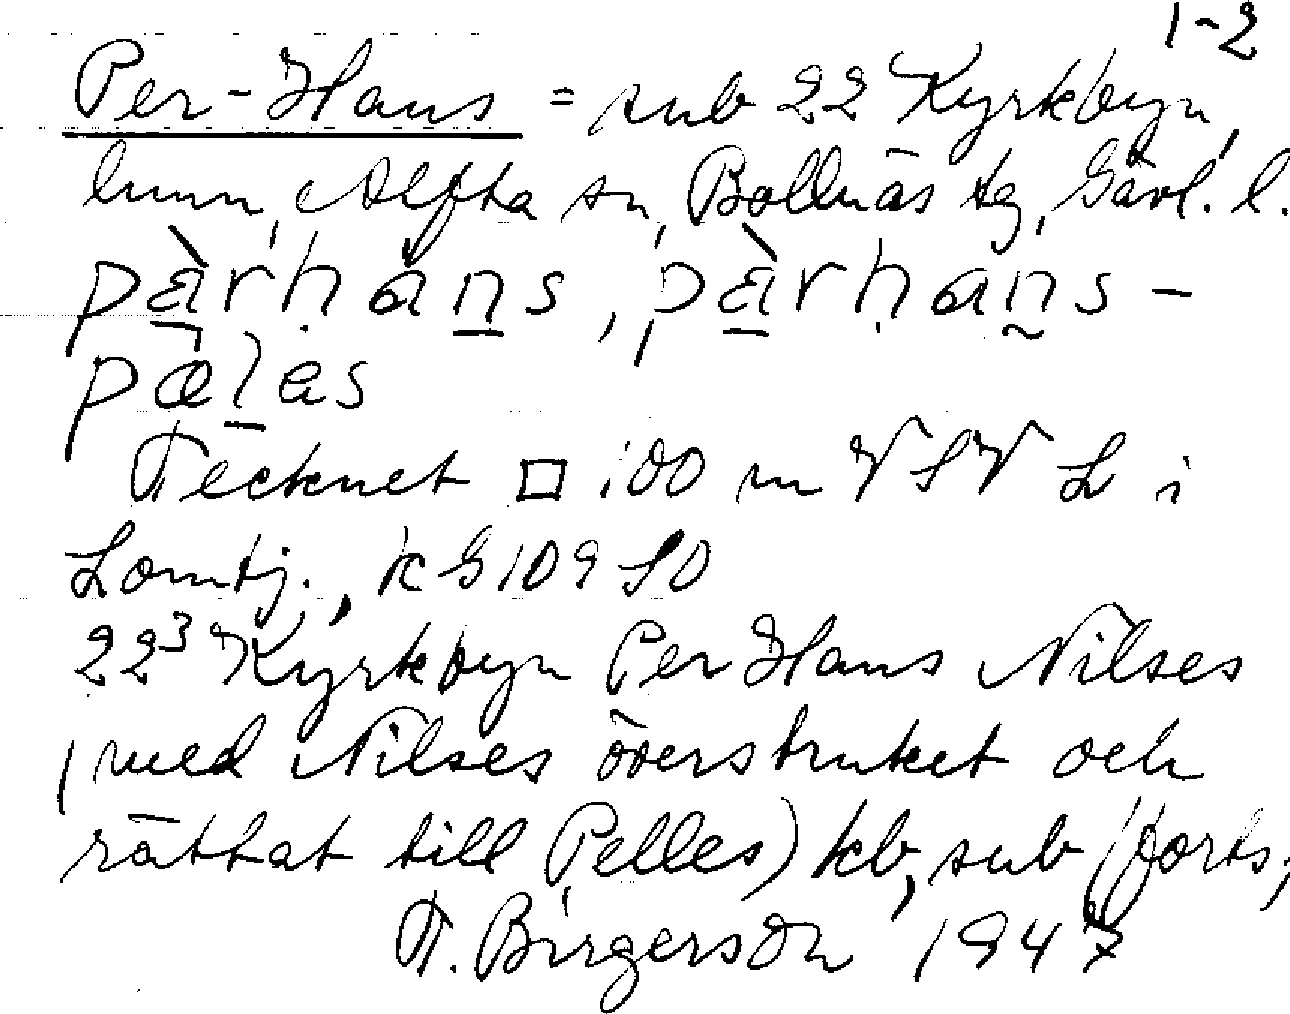 1-2
Per-Hans = sub 22 Kyrkbyn,
hmn, Alfta sn, Bollnäs tg, Gävl. l.
pàrhàns, pàrhans-
pælas
Tecknet □ 100 m VSV L i
Lomtj., k G 109 SO
22³ Kyrkbyn Per Hans Nilses
(med Nilses överstruket och
rättat till Pelles) kb, sub (forts,
T. Birgerson 1947